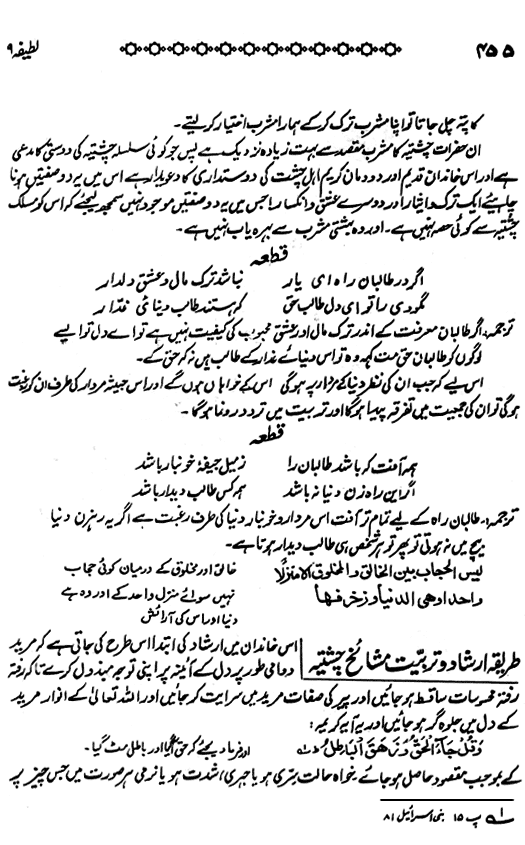 ۴۵۵ لطیفہ ۹
کا پتہ چل جاتا تو اپنا مشرب ترک کر کے ہمارا مشرب اختیار کر لیتے۔
ان حضرات چشتیہ کا مشرب مقصد سے بہت زیادہ نزدیک ہے پس جو کوئی سلسلہ چشتیہ کی دوستی کا مدعی
ہے اور اس خاندان قدیم اور دودمان کریم اہل چشت کی دوستداری کا دعویدار ہے اس میں یہ دو صفتیں ہونا
چاہئیے ایک ترک و ایثار اور دوسرے عشق و انکسار جس میں یہ دو صفتیں موجود نہیں سمجھ لیجئے کہ اس کو مسلک
چشتیہ سے کوئی حصہ نہیں ہے۔ اور وہ بہشتی مشرب سے بہرہ یاب نہیں ہے۔
قطعہ
اگر در طالبان راہ ای یار نباشد ترک مال و عشق دلدار
مگو دی را تو ای دل طالب حق کہ ہستند طالب دنیائی غدّار
ترجمہ:۔ اگر طالبان معرفت کے اندر ترک مال اور عشق محبوب کی کیفیت نہیں ہے تو اے دل تو ایسے
لوگوں کو طالبان حق مت کہہ وہ تو اس دنیائے غدار کے طالب ہیں نہ کہ حق کے۔
اس لیے کہ جب ان کی نظر دنیا کے مزار پر ہو گی اس کے خواہاں ہوں گے اور اس جیفۂ مردار کی طرف ان کو رغبت
ہو گی تو ان کی جمعیت میں تفرقہ پیدا ہو گا اور تربیت میں تردد رونما ہو گا۔
قطعہ
ہمہ آمنت کہ باشد طالبان را ز میل جیفۂ خونبار باشد
اگر این راہ زن دنیا نہ باشد ہمہ کس طالب دیدار باشد
ترجمہ:۔ طالبان راہ کے لیے تمام تر آفت اس مردار و خونبار دنیا کی طرف رغبت ہے اگر یہ رہزن دنیا
بیچ میں نہ ہوتی تو پھر تو ہر شخص ہی طالب دیدار ہوتا ہے۔
لیس الحجاب بین الخالق والمخلوق الا منزلًا خالق اور مخلوق کے درمیان کوئی حجاب
واحدا وھی الدنیا و زخرفھا نہیں سوائے منزل واحد کے اور وہ ہے
دنیا اور اس کی آرائش
طریقہ ارشاد و تربیت مشائخ چشتیہ اس خاندان میں ارشاد کی ابتدا اس طرح کی جاتی ہے کہ مرید
دعامی طور پر دل کے آئینہ پر اپنی توجہ مبذول کرے تاکہ رفتہ
رفتہ محسوسات ساقط ہو جائیں اور پیر کی صفات مرید میں سرایت کر جائیں اور اللہ تعالیٰ کے انوار مرید
کے دل میں جلوہ گر ہو جائیں اور یہ آیہ کریمہ:
وَقُلْ جَآءَ الْحَقُّ وَزَهَقَ الْبَاطِلُ ؕ لہ اور فرما دیجئے کہ حق آگیا اور باطل مٹ گیا۔
کے بموجب مقصود حاصل ہو جائے۔ خواہ حالت سرّی ہو یا جہری، شدت ہو یا نرمی ہر صورت میں جس چیز پر
لہ پ ۱۵ بنی اسرائیل ۸۱